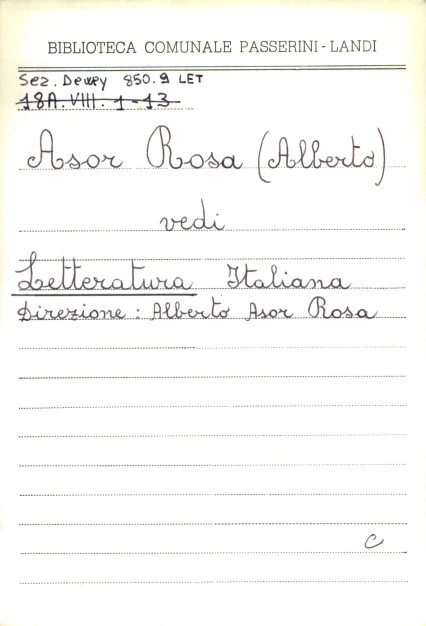 BIBLIOTECA COMUNALE PASSERINI-LANDI
Sez. Dewey 850.9 LET
18A. VIII. 1-13
Asor Rosa (Alberto)
vedi
Letteratura Italiana
Direzione: Alberto Asor Rosa
C